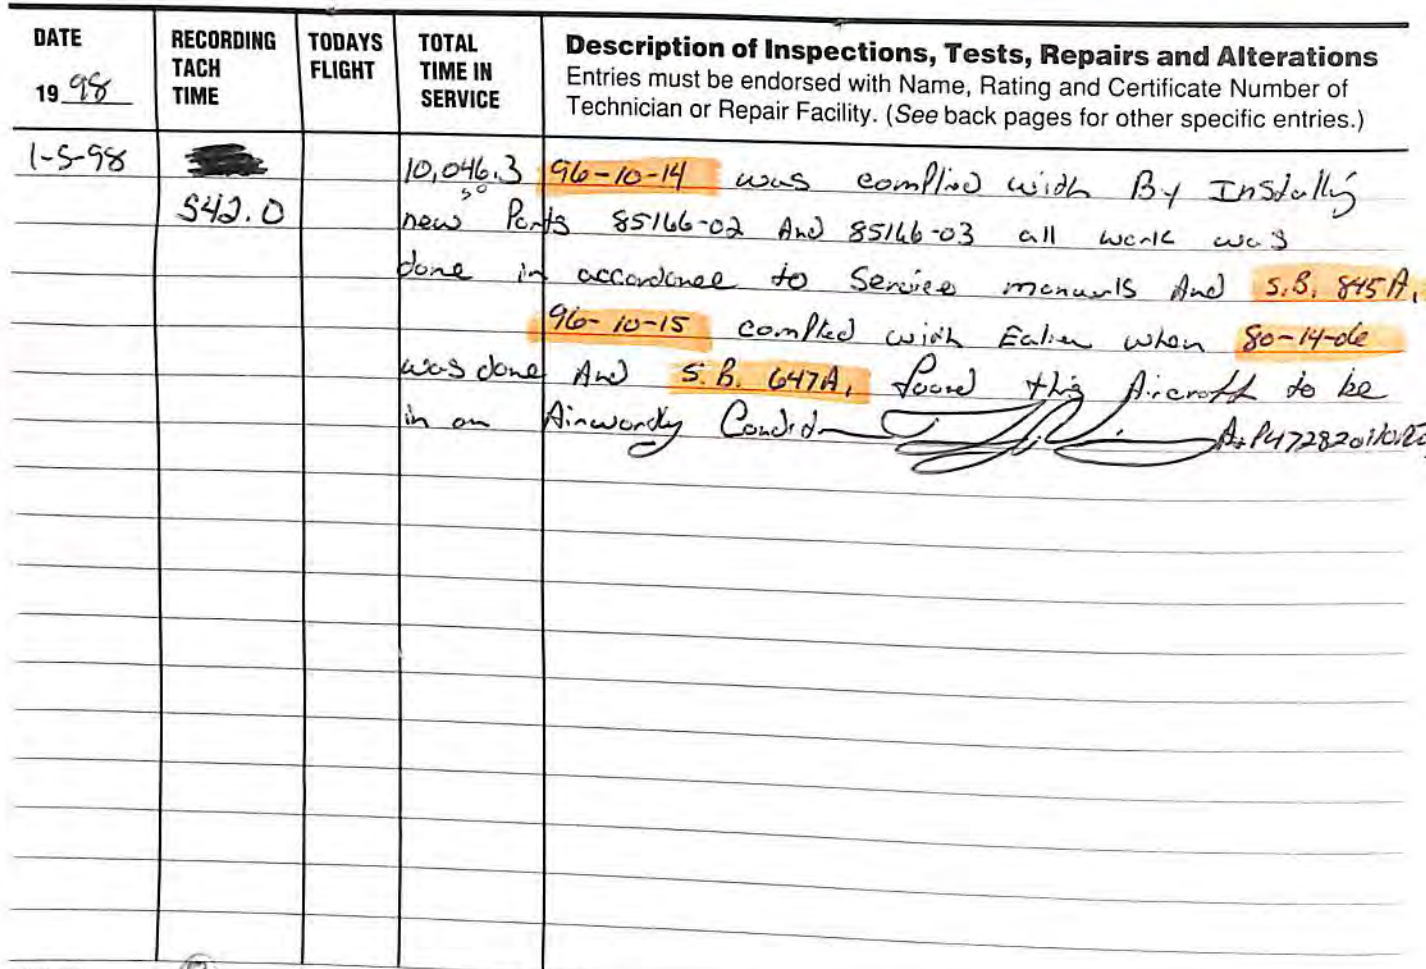 DATE
19 98
RECORDING
TACH
TIME
TODAYS
FLIGHT
TOTAL
TIME IN
SERVICE
Description of Inspections, Tests, Repairs and Alterations
Entries must be endorsed with Name, Rating and Certificate Number of
Technician or Repair Facility. (See back pages for other specific entries.)
1-5-98 10,046.3 96-10-14 was complied with By Instally
50
542.0 new Parts 85166-02 And 85166-03 all work was
done in accordance to Service manuals And S.B. 845A,
96-10-15 complied with Ealier when 80-14-06
was done And S.B. 647A, found this Aircraft to be
in an Airworthy Condition